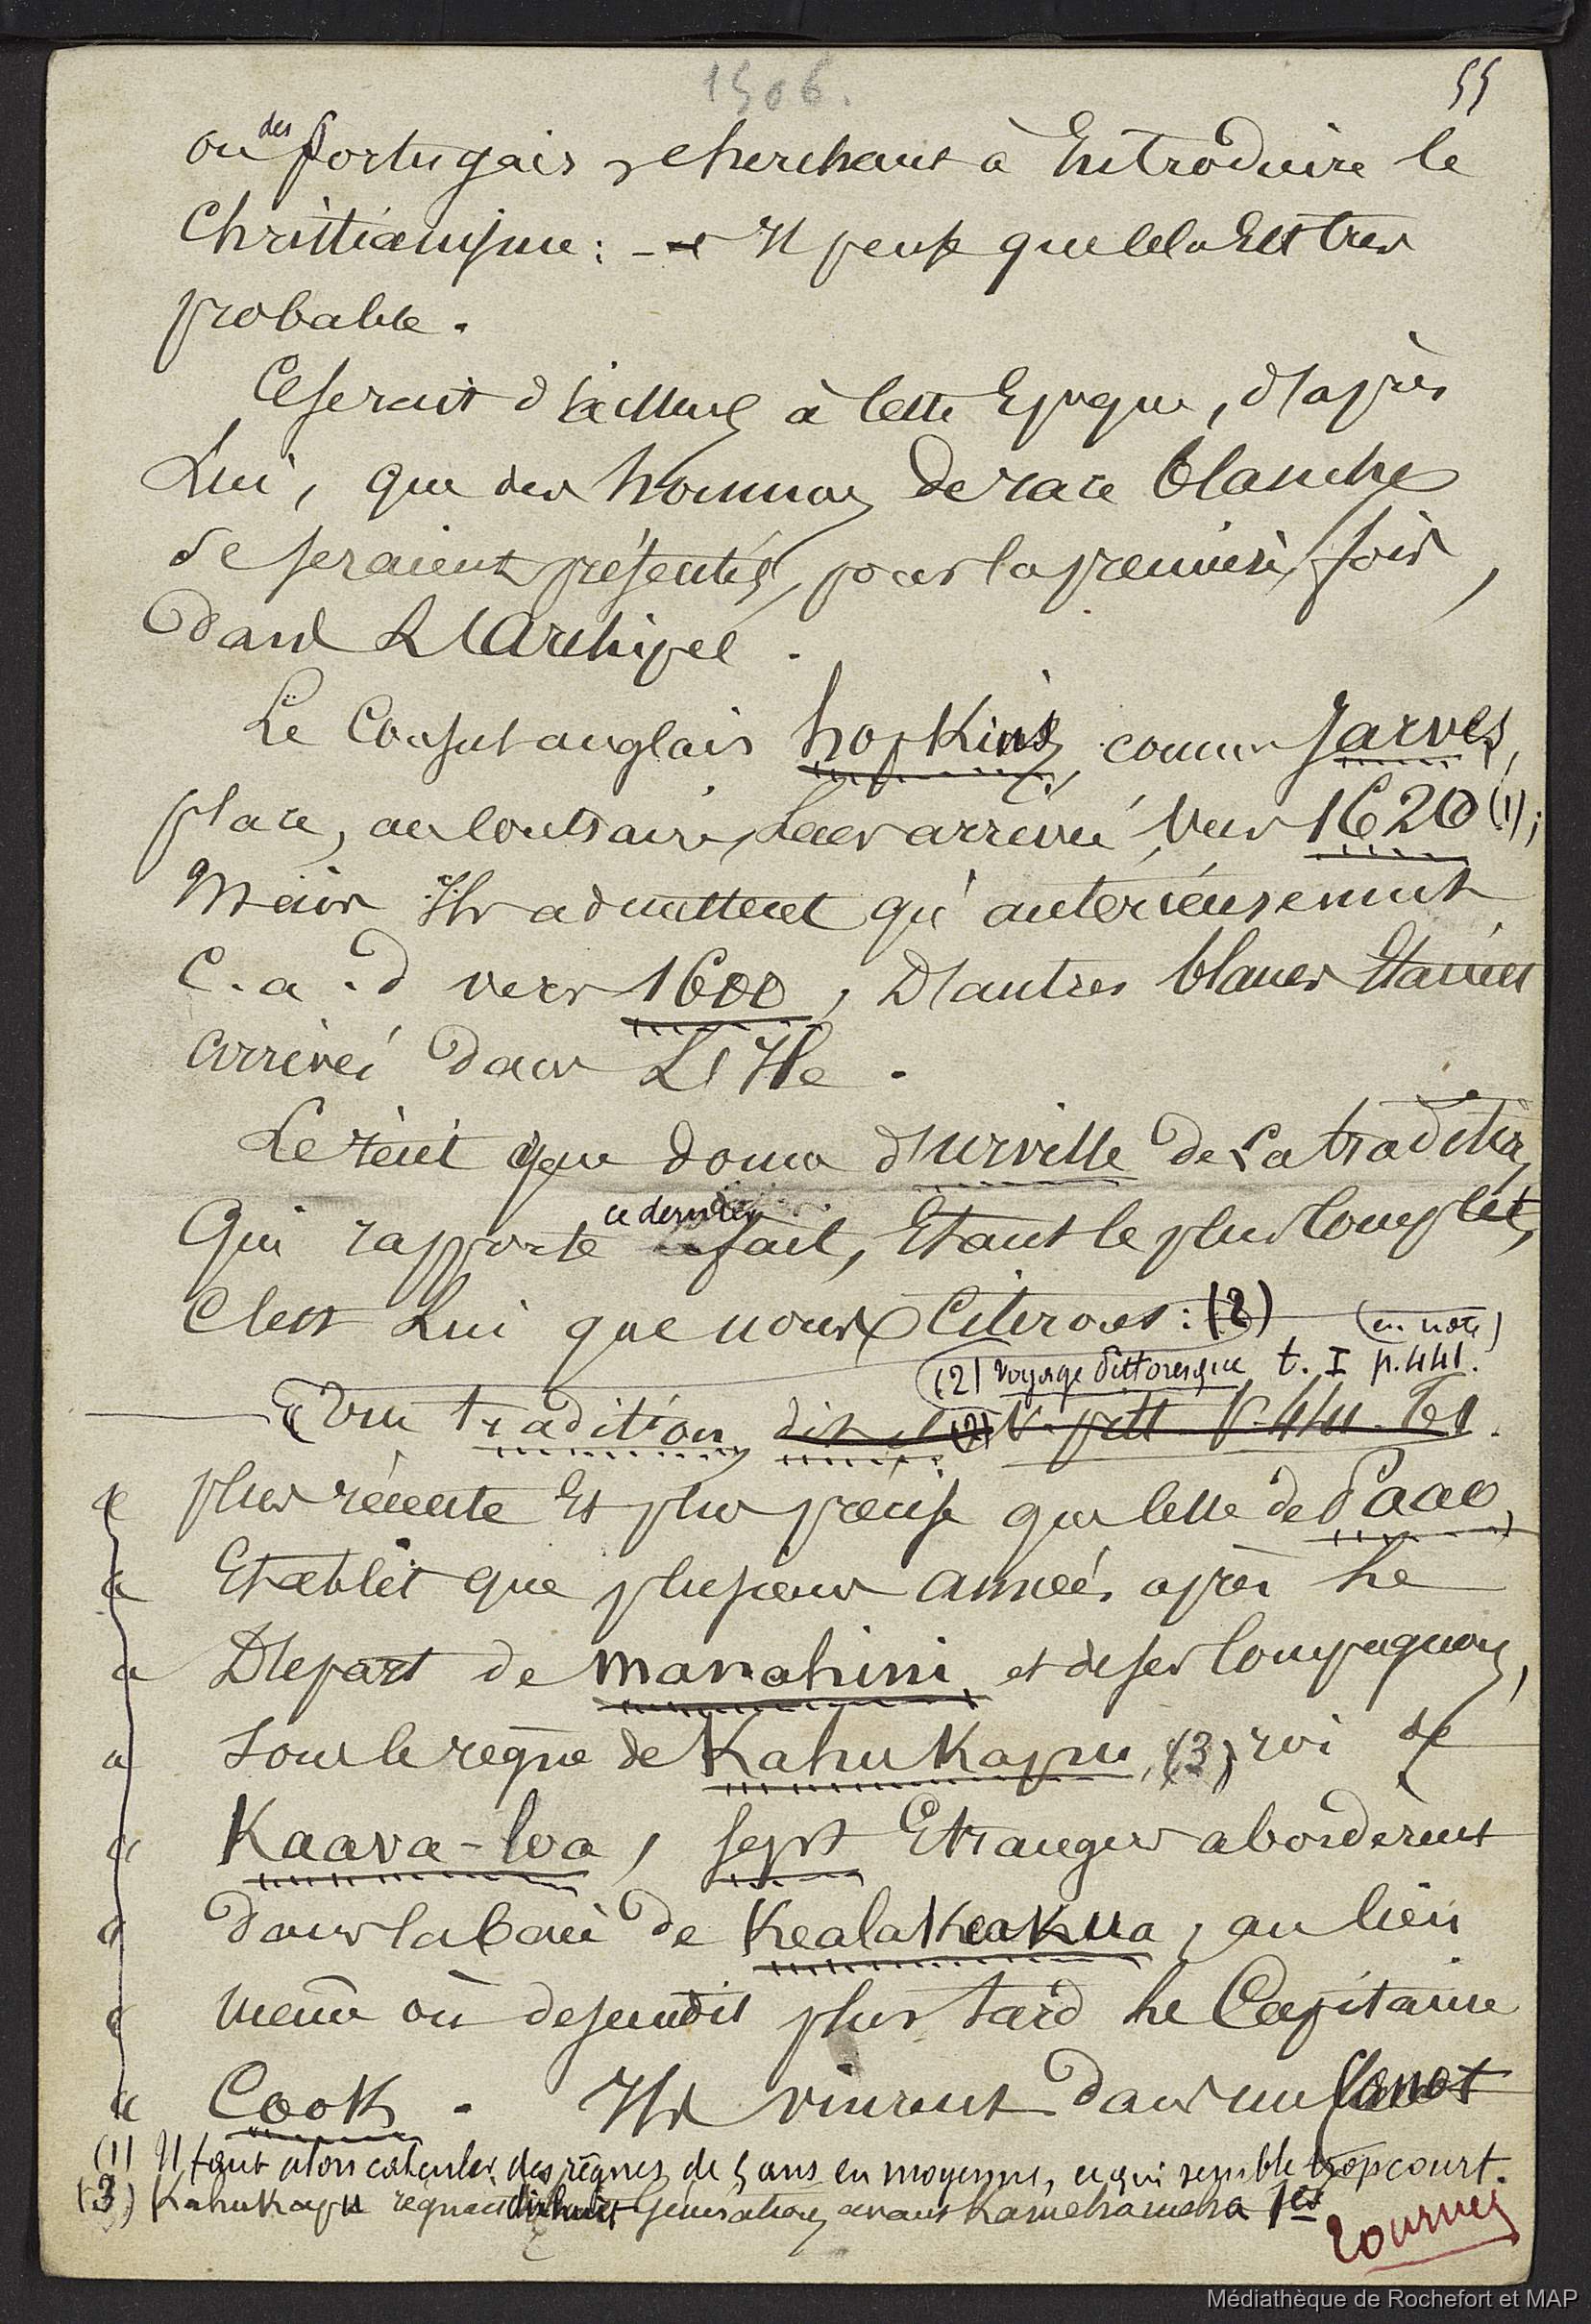 1506.
55
ou des portugais, cherchant à Introduire le
Christianisme : - Il pense que cela Est très
probable.
Ce serait d'ailleurs à cette Epoque, d'après
Lui, que des hommes de race blanche
se seraient présentés, pour la première fois,
dans L'Archipel.
Le Consul anglais hopkins, comme Jarves,
place, au contraire, Leur arrivée, Vers 1620 (1);
Mais Ils admettent qu'antérieurement
C.a.d vers 1600, D'autres blancs Etaient
arrivés dans L'Ile.
Le récit que donne d'urville de La tradition
Qui rapporte ce dernier fait, Etant le plus Complet,
C'est Lui que nous Citerons : (2)
(en note)
(2) Voyage Pittoresque, t. I p. 441.
« Une tradition, dit-il (2) V. pitt. P. 441. T 1.
« plus récente Et plus précise que celle de Paao,
« Etablit que plusieurs années après Le
« Départ de Manahini et de ses Compagnons,
« sous le règne de KahuKapu, (3) roi de
« Kaava-loa, sept Etrangers abordèrent
« dans la baie de KealaKeaKua, au lieu
« même où descendit plus tard Le Capitaine
« Cook. Ils vinrent dans un Canot
(1) Il faut alors calculer des règnes de 5 ans en moyenne, ce qui semble trop court.
(3) KahuKapu régnait dix huit Générations avant Kamehameha 1er
Tournez
Médiathèque de Rochefort et MAP